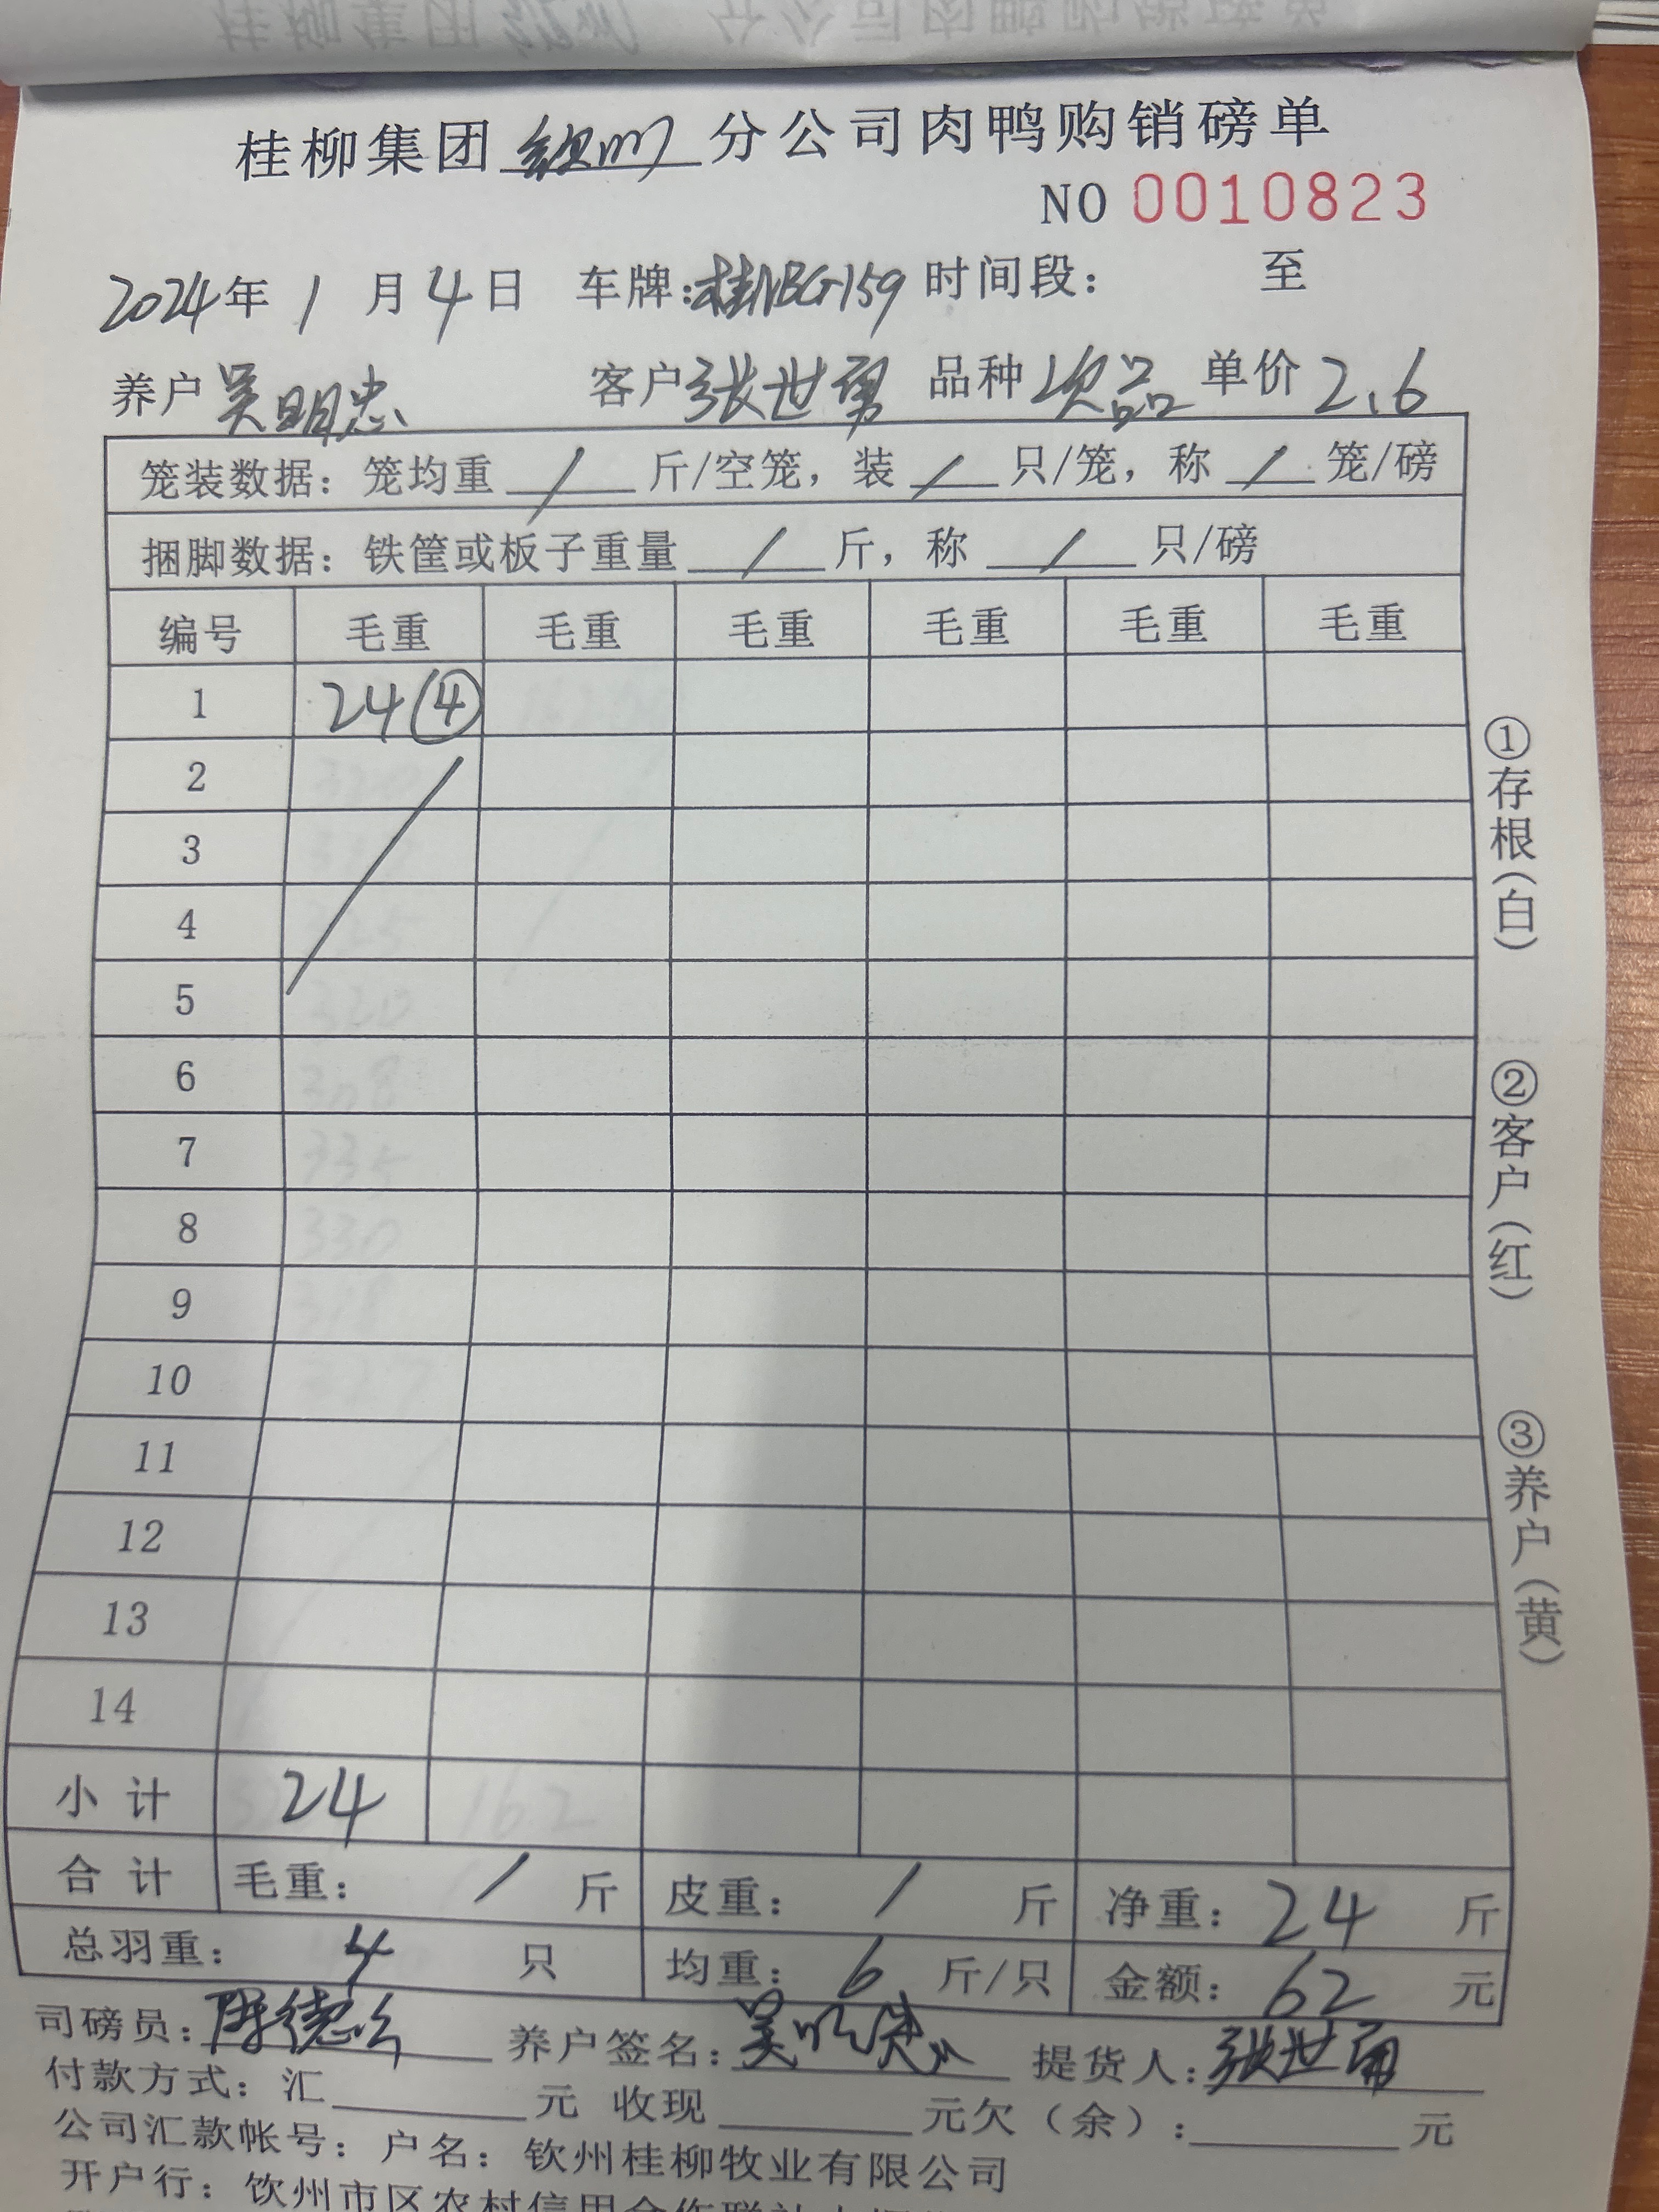 桂柳集团钦州分公司肉鸭购销磅单
NO 0010823
2024年1月4日 车牌:桂NBG159 时间段: 至
养户 吴明忠 客户 张世勇 品种 次品 单价 2.6
笼装数据:笼均重 / 斤/空笼,装 / 只/笼,称 / 笼/磅
捆脚数据:铁筐或板子重量 / 斤,称 / 只/磅
编号 毛重 毛重 毛重 毛重 毛重 毛重
1 24④
2
3
4
5
6
7
8
9
10
11
12
13
14
小计 24
合计 毛重: / 斤 皮重: / 斤 净重: 24 斤
总羽重: 4 只 均重: 6 斤/只 金额: 62 元
司磅员: 养户签名:吴明忠 提货人:张世勇
付款方式:汇 元 收现 元欠(余): 元
公司汇款帐号:户名:钦州桂柳牧业有限公司
开户行:钦州市区农村信用合作联社
①存根(白)
②客户(红)
③养户(黄)